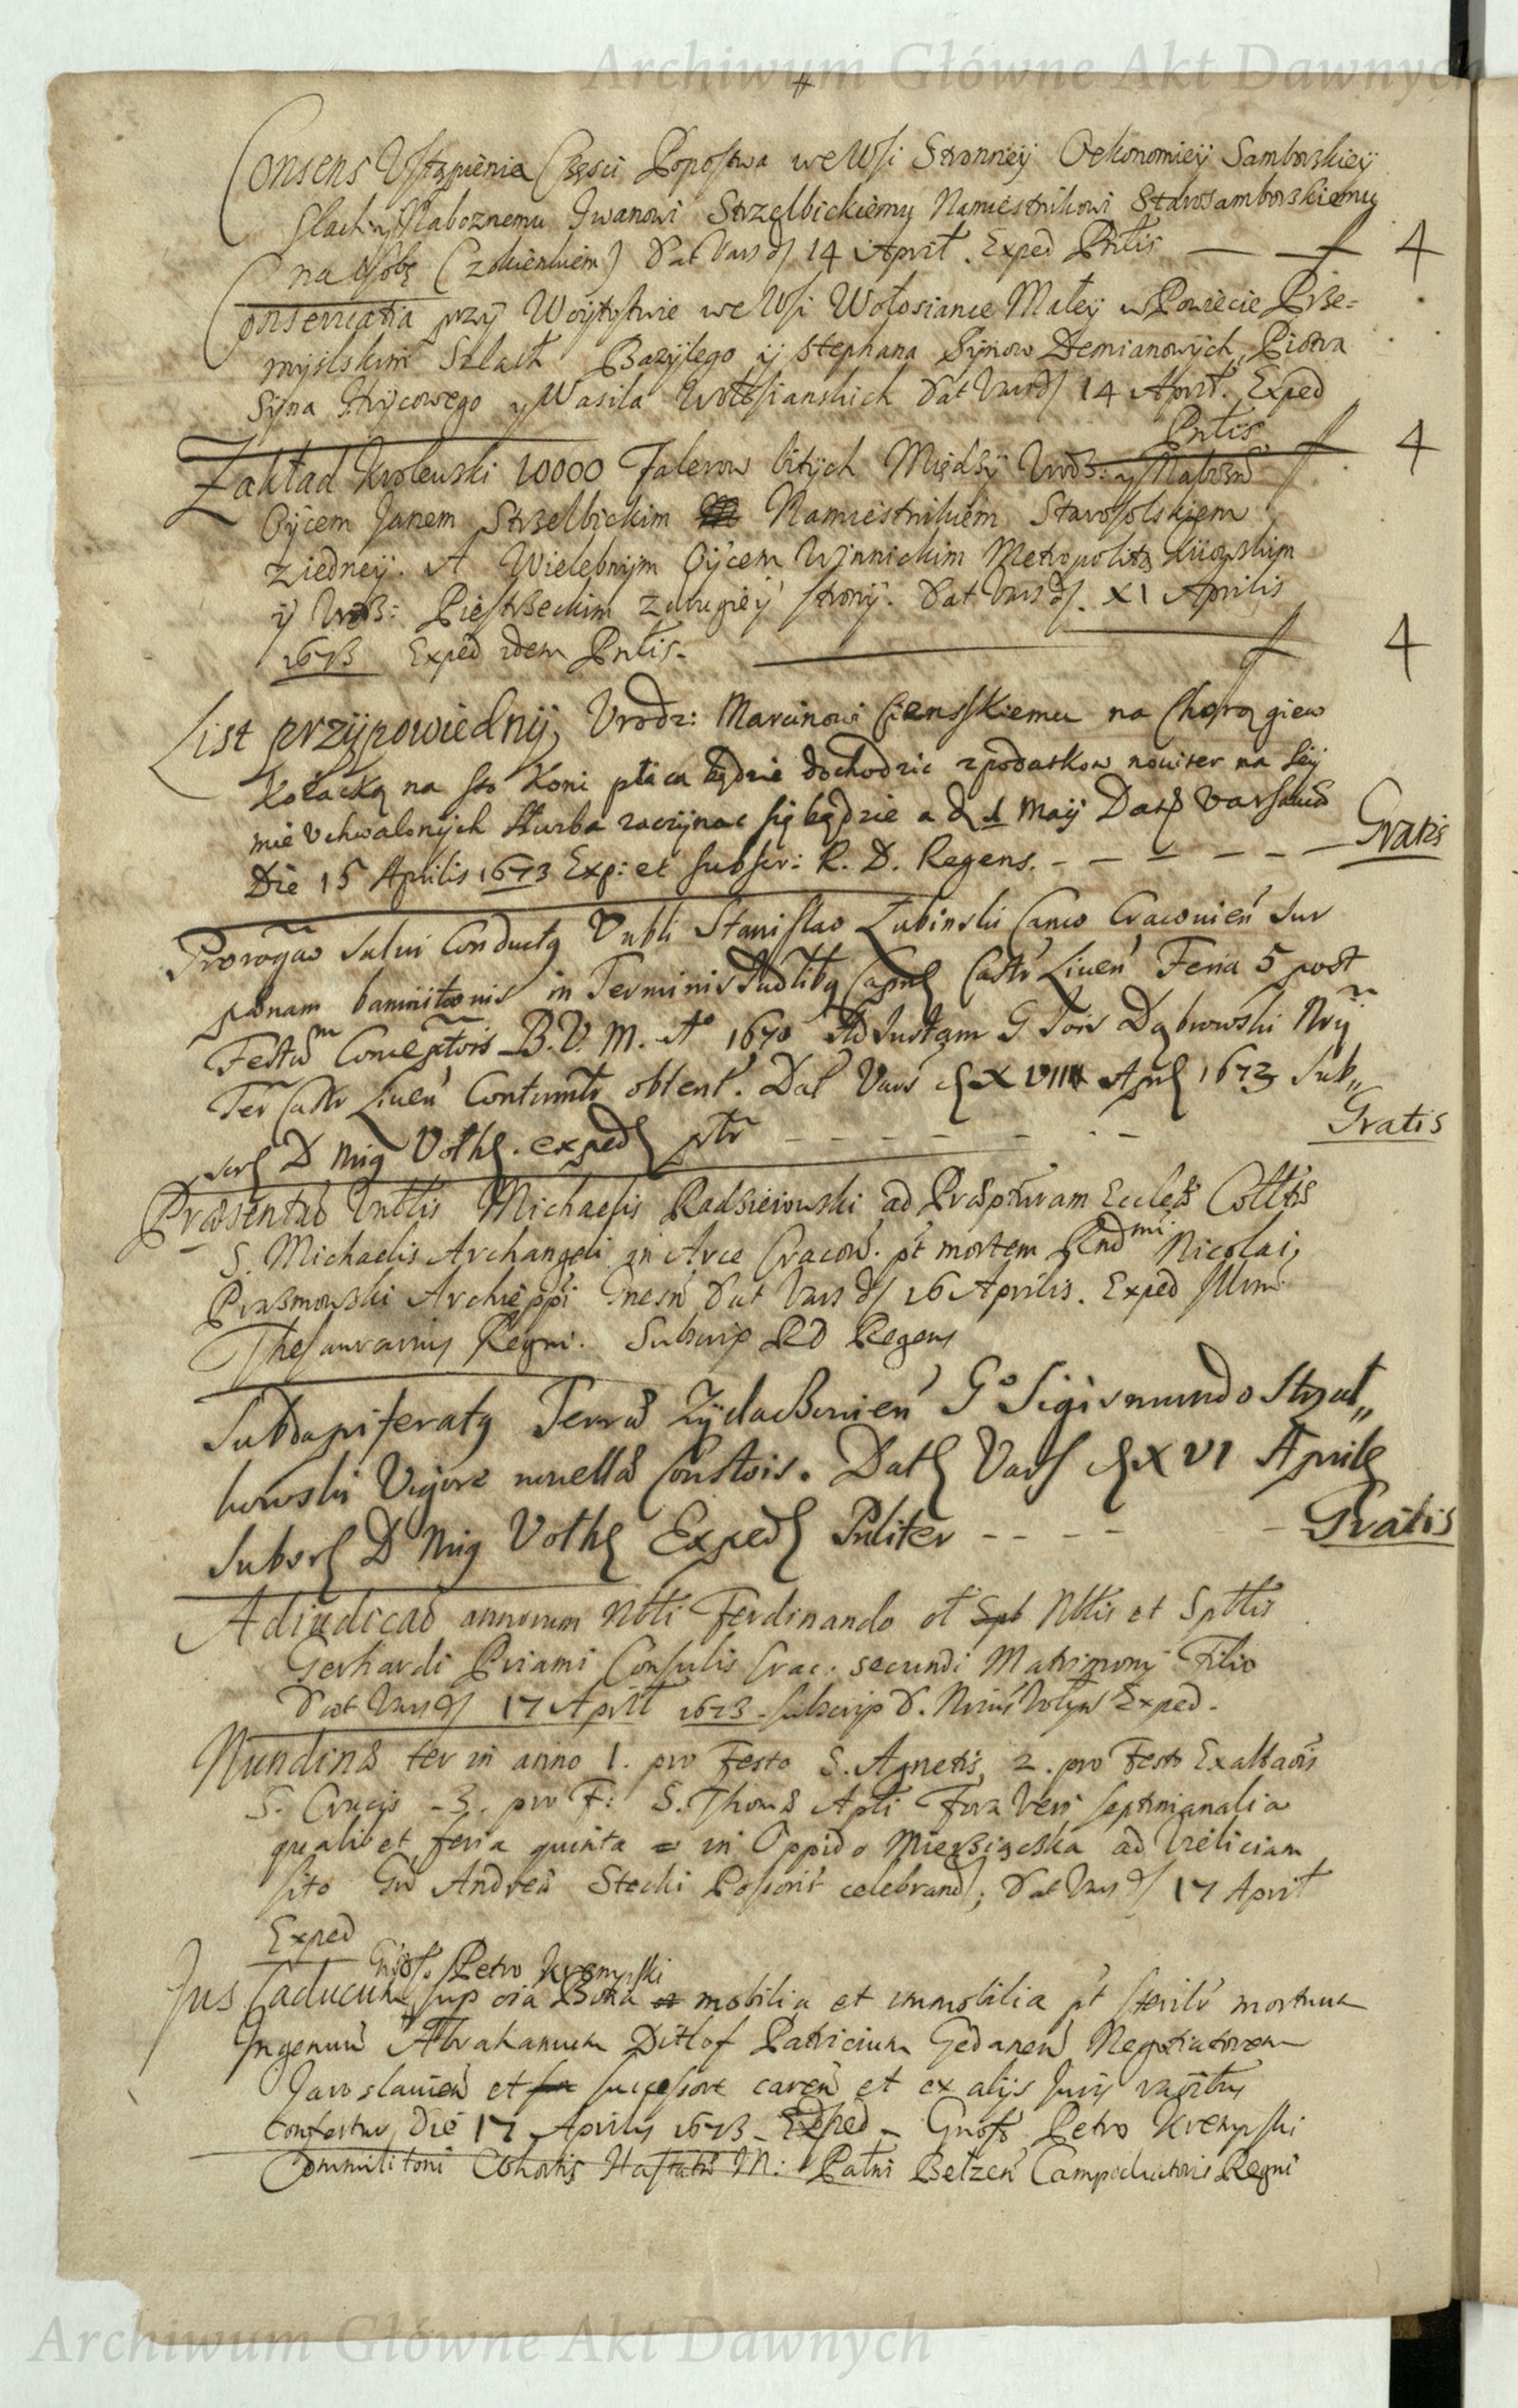 Archiwum Główne Akt Dawnych
Consens Ustąpienia Części Popostwa we Wsi Stronney Oekonomiey Samborskiey
Slach y Naboznemu Iwanowi Strzelbickiemu Namiestnikowi Starosamborskiemu
na Osobę Dat Vars d 14 April. Exped Pntis — f 4
Conservatia przy Woytostwie we Wsi Wołosiance Małey w Powiecie Prze=
myslskim Szlach Bazylego y Stephana Synow Demianowych, Piotra
Syna Stryiowego y Wasila Wołosianskich Dat Vars d 14 April. Exped
Pntis f 4
Zakład Krolewski 10000 Talerow bitych Między Urodz: y Nabozn
Oycem Janem Strzelbickim Namiestnikiem Starosolskiem
z iedney. A Wielebnym Oycem Winnickim Metropolitą Kiiowskim
y Urodz: Piestrzeckim z drugiey strony. Dat Vars d. XI Aprilis
1673 Exped idem Pntis. f 4
List przypowiedny, Vrodz: Marcinowi Cienskiemu na Chorągiew
Kozacką na sto Koni płaca będzie dochodzic z podatkow noviter na Sey
mie Vchwalonych Służba zaczynac się będzie a d 1 Maij Dat Varsaviae
Die 15 Aprilis 1673 Exp: et subscr: R. D. Regens. - - - - - - Gratis
Prorogao salvi Conductus Vnbli Stanislao Łubinski Canco Cracovien sur
paenam bannitionis in Terminis Castr Liven Feria 5 post
Festum Conceptois B. V. M. Ao 1670 Ad Instam G Jois Dąbrowski Nrij
Ter Castr Liven Contumtr obtent. Dat Vars d XVIII Apri 1673 Sub„
scr D Mig Voth. exped ptr - - - - - - - Gratis
Praesentao Vnblis Michaelis Radzieiowski ad Praepturam Eccles Colltis
S. Michaelis Archangeli in Arce Cracov. pt mortem Rndmi Nicolai,
Prazmowski Archieppi Gnesn Dat Vars d 16 Aprilis. Exped Illmi
Thesaurarius Regni. Subscrip RD Regens
Subdapiferatus Terrae Zydaczovien Go Sigismundo Strzał„
kowski Vigore novellae Constois. Dat Vars d XVI Aprilis
Subscr D Mig Voth Exped Pnliter - - - - - Gratis
Adiudicao annorum Nbli Ferdinando ol Nblis et Sptlis
Gerhardi Priami Consulis Crac. secundi Matrimonij Filio
Dat Vars d 17 April 1673. subscrip D. Exped.
Nundinae ter in anno 1. pro Festo S. Agnetis, 2. pro Festo Exaltaois
S. Crucis - 3. pro F: S. Thomae Apli Fora Vero septimanalia
qualibet feria quinta in Oppido Mierziączka ad Vieliciam
sito Gn Andreae Stecki Possoris celebrand, Dat Vars d 17 April
Exped
Gnoso Petro Krempski
Jus Caducum, sup oia Bona mobilia et immobilia pt steril mortuum
Ingenuum Abrahamum Ditlof Patricium Gedanen Negotiatorem
Jaroslavien et successore caren et ex alijs Juris raoibus
confertur, Die 17 Aprilis 1673 - Exped - Gnoso Petro Krempski
Commilitoni Cohortis Hastatae M: Patni Belzen Campiductoris Regni
Archiwum Główne Akt Dawnych